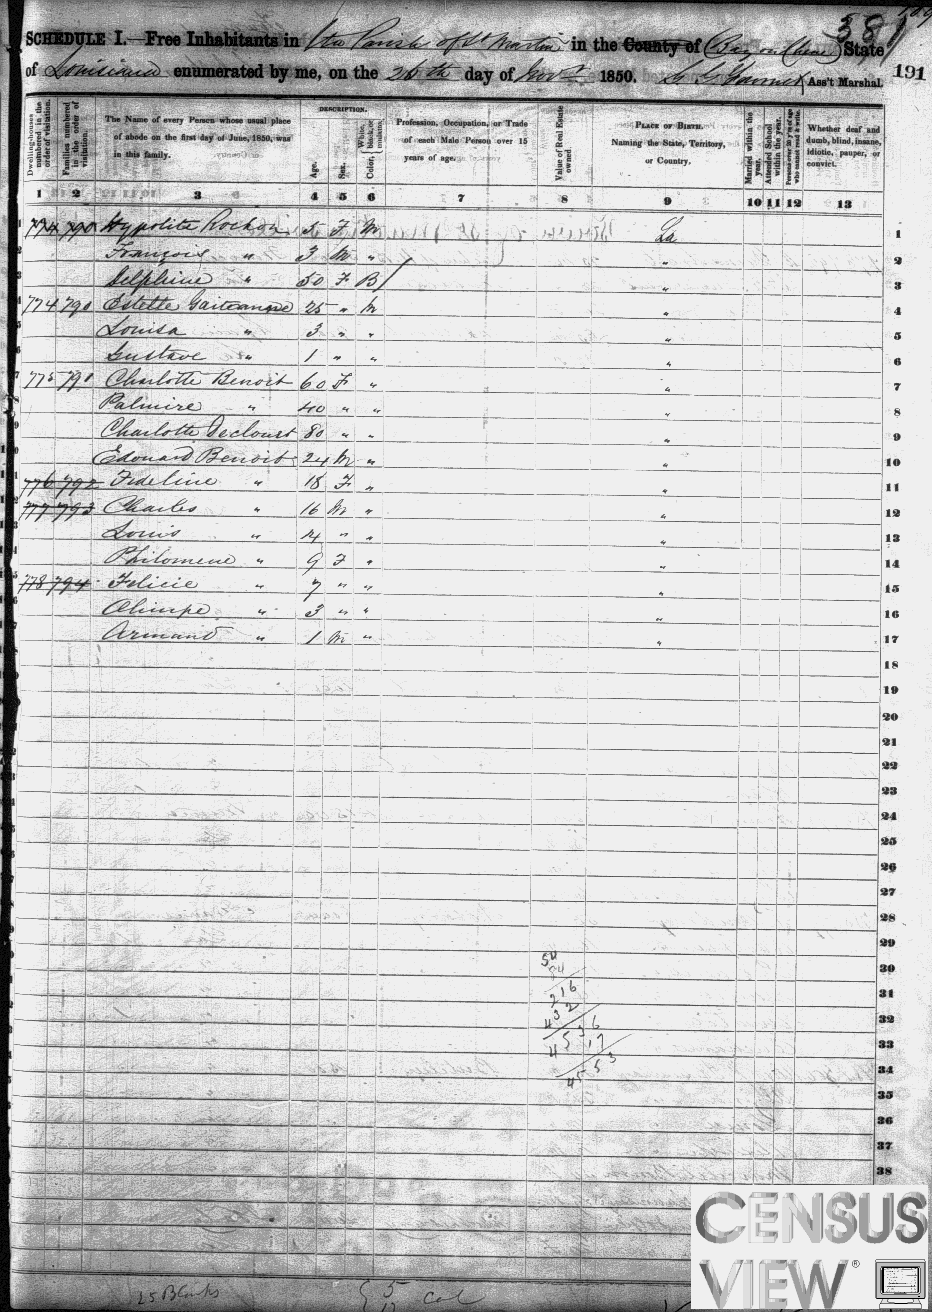 381
SCHEDULE I.—Free Inhabitants in the Parish of St Martin in the County of State
of Louisiana enumerated by me, on the 26th day of Novr 1850. Ass't Marshal. 191
Dwelling-houses numbered in the order of visitation.
Families numbered in the order of visitation.
The Name of every Person whose usual place of abode on the first day of June, 1850, was in this family.
DESCRIPTION.
Age.
Sex.
Color, White, black, or mulatto.
Profession, Occupation, or Trade of each Male Person over 15 years of age.
Value of Real Estate owned
PLACE OF BIRTH. Naming the State, Territory, or Country.
Married within the year.
Attended School within the year.
Persons over 20 y'rs of age who cannot read & write.
Whether deaf and dumb, blind, insane, idiotic, pauper, or convict.
1 2 3 4 5 6 7 8 9 10 11 12 13
1 774 790 Hypolite Rochon 5 F M La 1
François " 3 M " " 2
Delphine " 50 F B " 3
774 790 Estelle 25 " M " 4
Louisa " 3 " " " 5
Gustave " 1 " " " 6
775 791 Charlotte Benoit 60 F " " 7
Palmire " 40 " " " 8
Charlotte Declouet 80 " " " 9
Edouard Benoit 24 M " " 10
776 792 Fideline " 18 F " " 11
777 793 Charles " 16 M " " 12
Louis " 14 " " " 13
Philomene " 9 F " " 14
778 794 Felicie " 7 " " " 15
Olimpe " 3 " " " 16
Armand " 1 M " " 17
18
19
20
21
22
23
24
25
26
27
28
29
54 30
84
216 31
432 32
4536
17 33
4553 34
35
36
37
38
25 Blanks
5 col
12
CENSUS
VIEW®